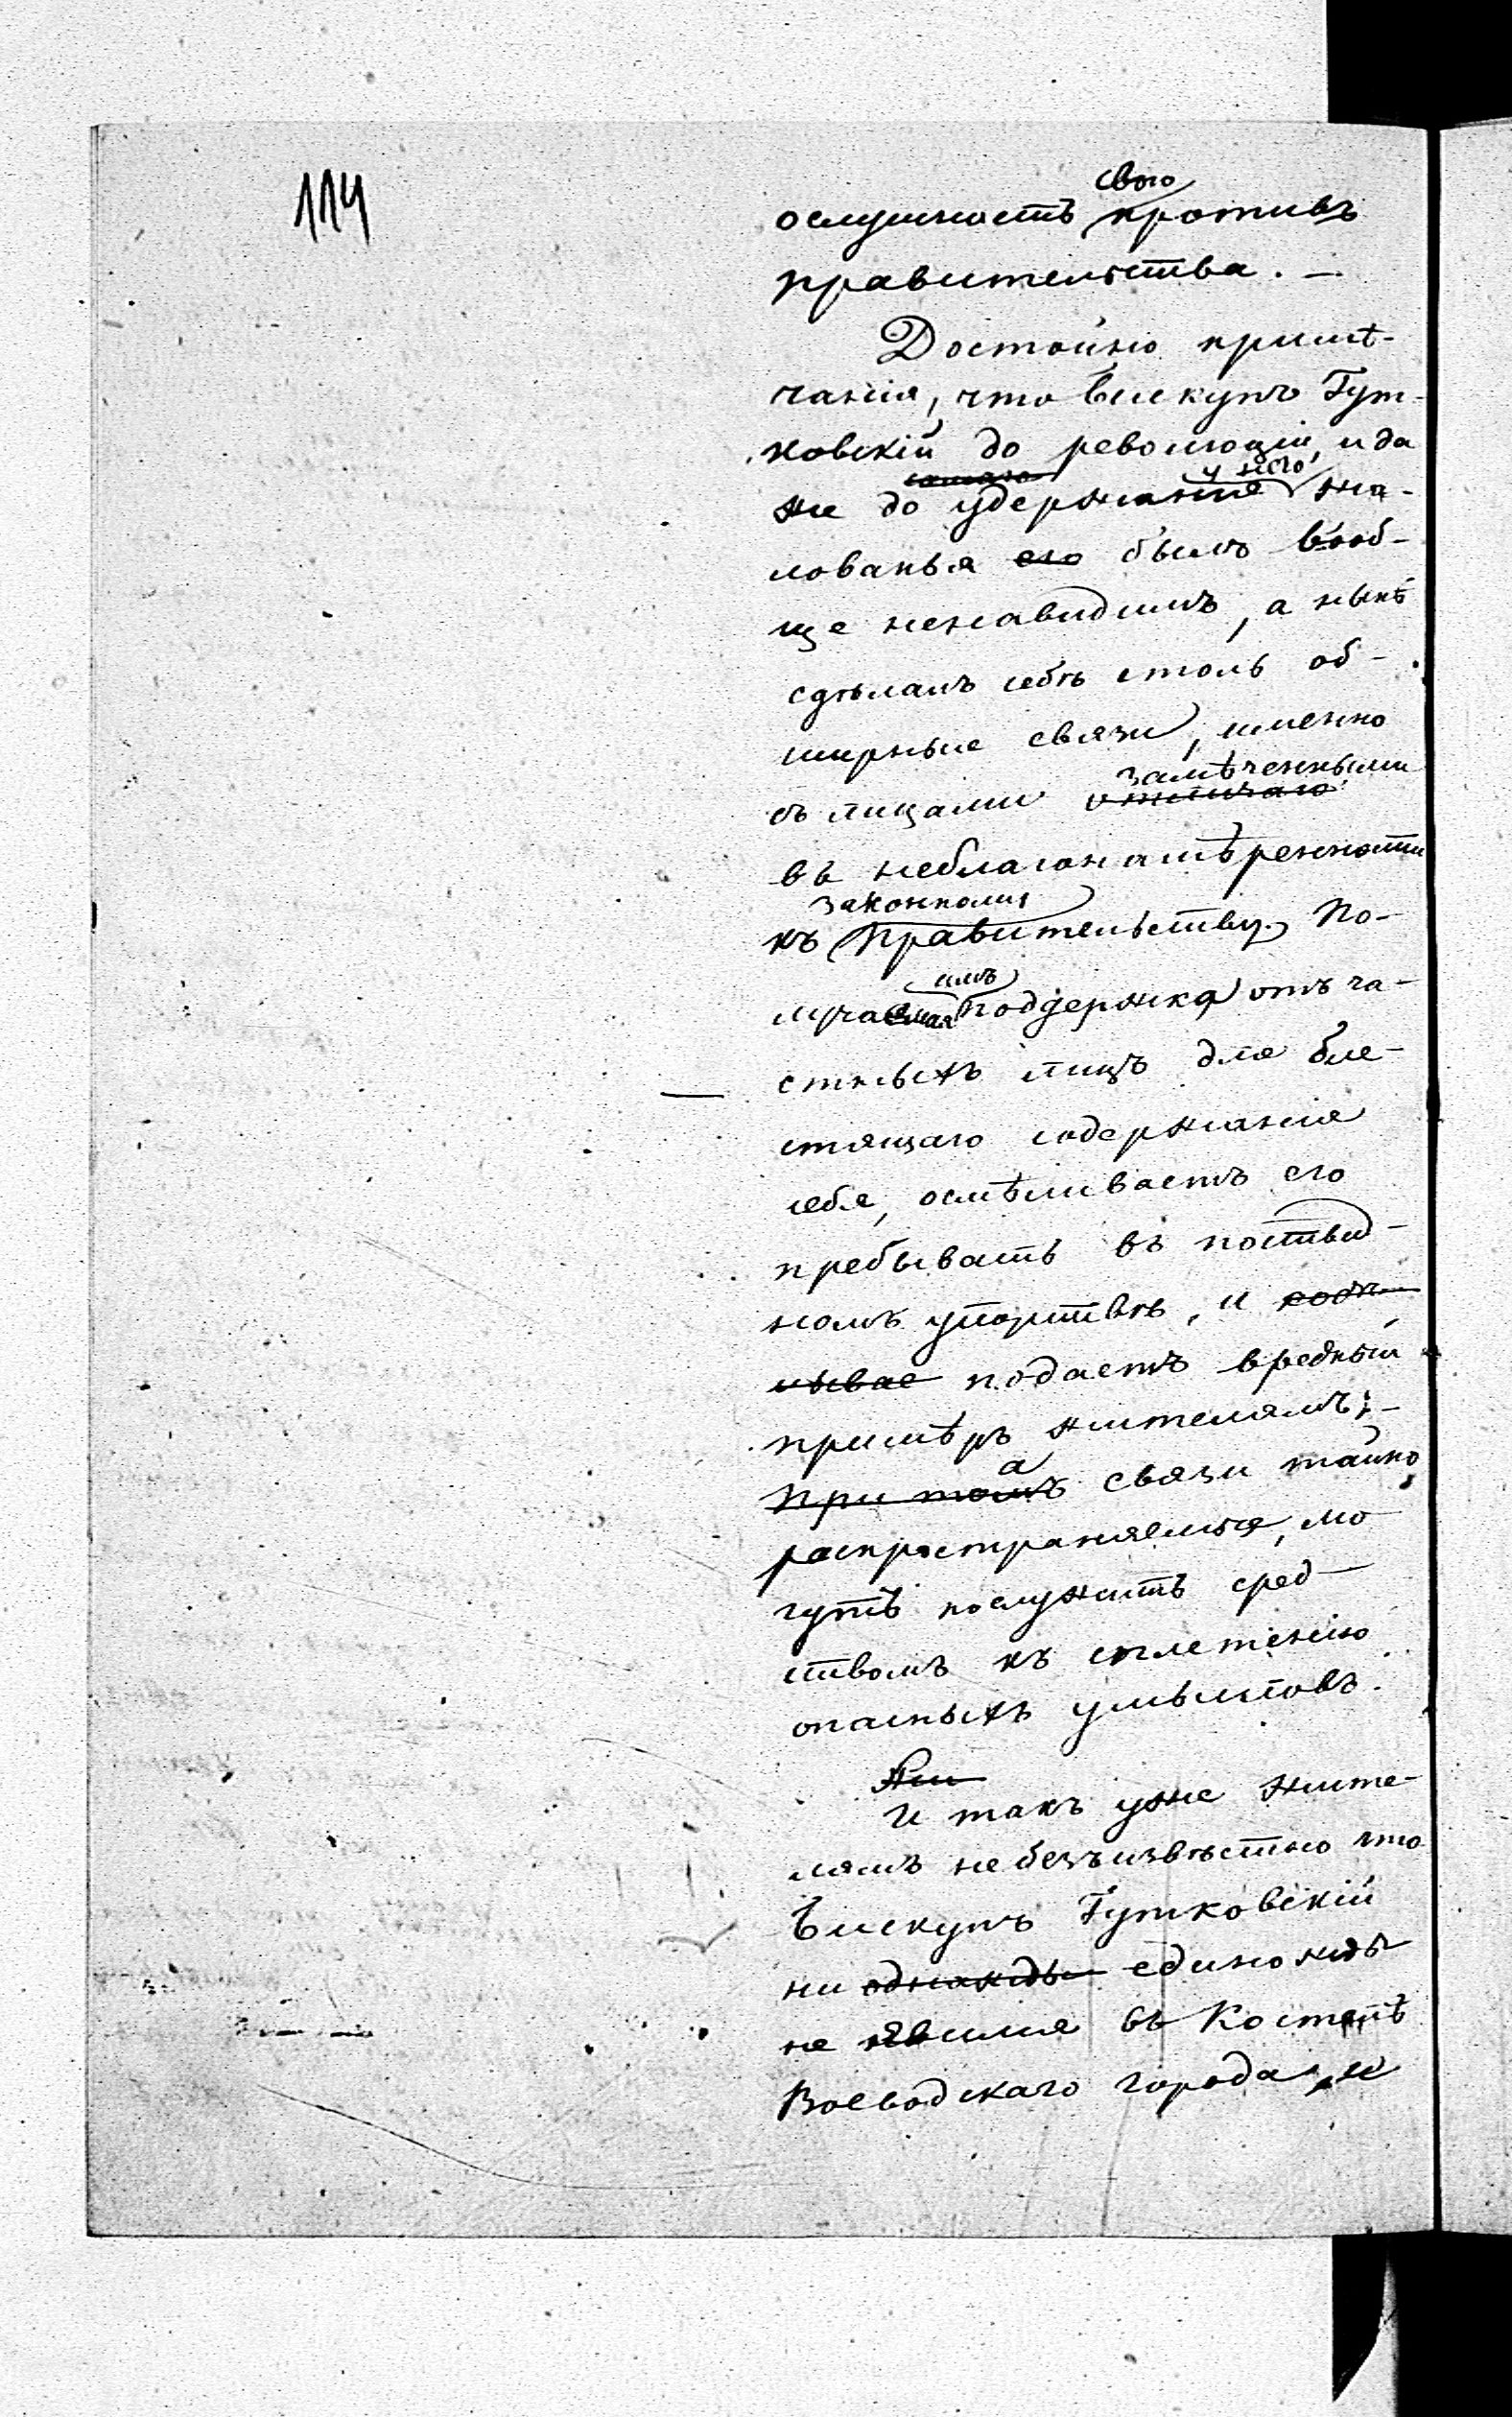 114
свою
ослушность противъ
правительства. —
Достойно примѣ-
чанія, что Бискупъ Гут-
ковскій до революціи, и да
самаго у него
же до удержанія жа-
лованья его былъ вооб-
ще ненавидимъ, а нынѣ
сдѣлалъ себѣ столь об-
ширные связи, именно
замѣченными
съ лицами
въ неблагонамѣренности
законному
къ Правительству. По-
имъ
лучаемая поддержка отъ ча-
стныхъ лицъ для бле-
стящаго содержанія
себя, осмѣливаетъ его
пребывать въ постыд-
номъ упорствѣ, и
подаетъ вредный
примѣръ жителямъ; —
а
При томъ связи тайно
распространяемыя, мо
гутъ послужить сред-
ствомъ къ сплетенію
опасныхъ умысловъ.
Жи
И такъ уже жите-
лямъ небезъизвѣстно что
Бискупъ Гутковскій
ни однажды единожды
не явился въ Костелѣ
Воеводскаго города, и